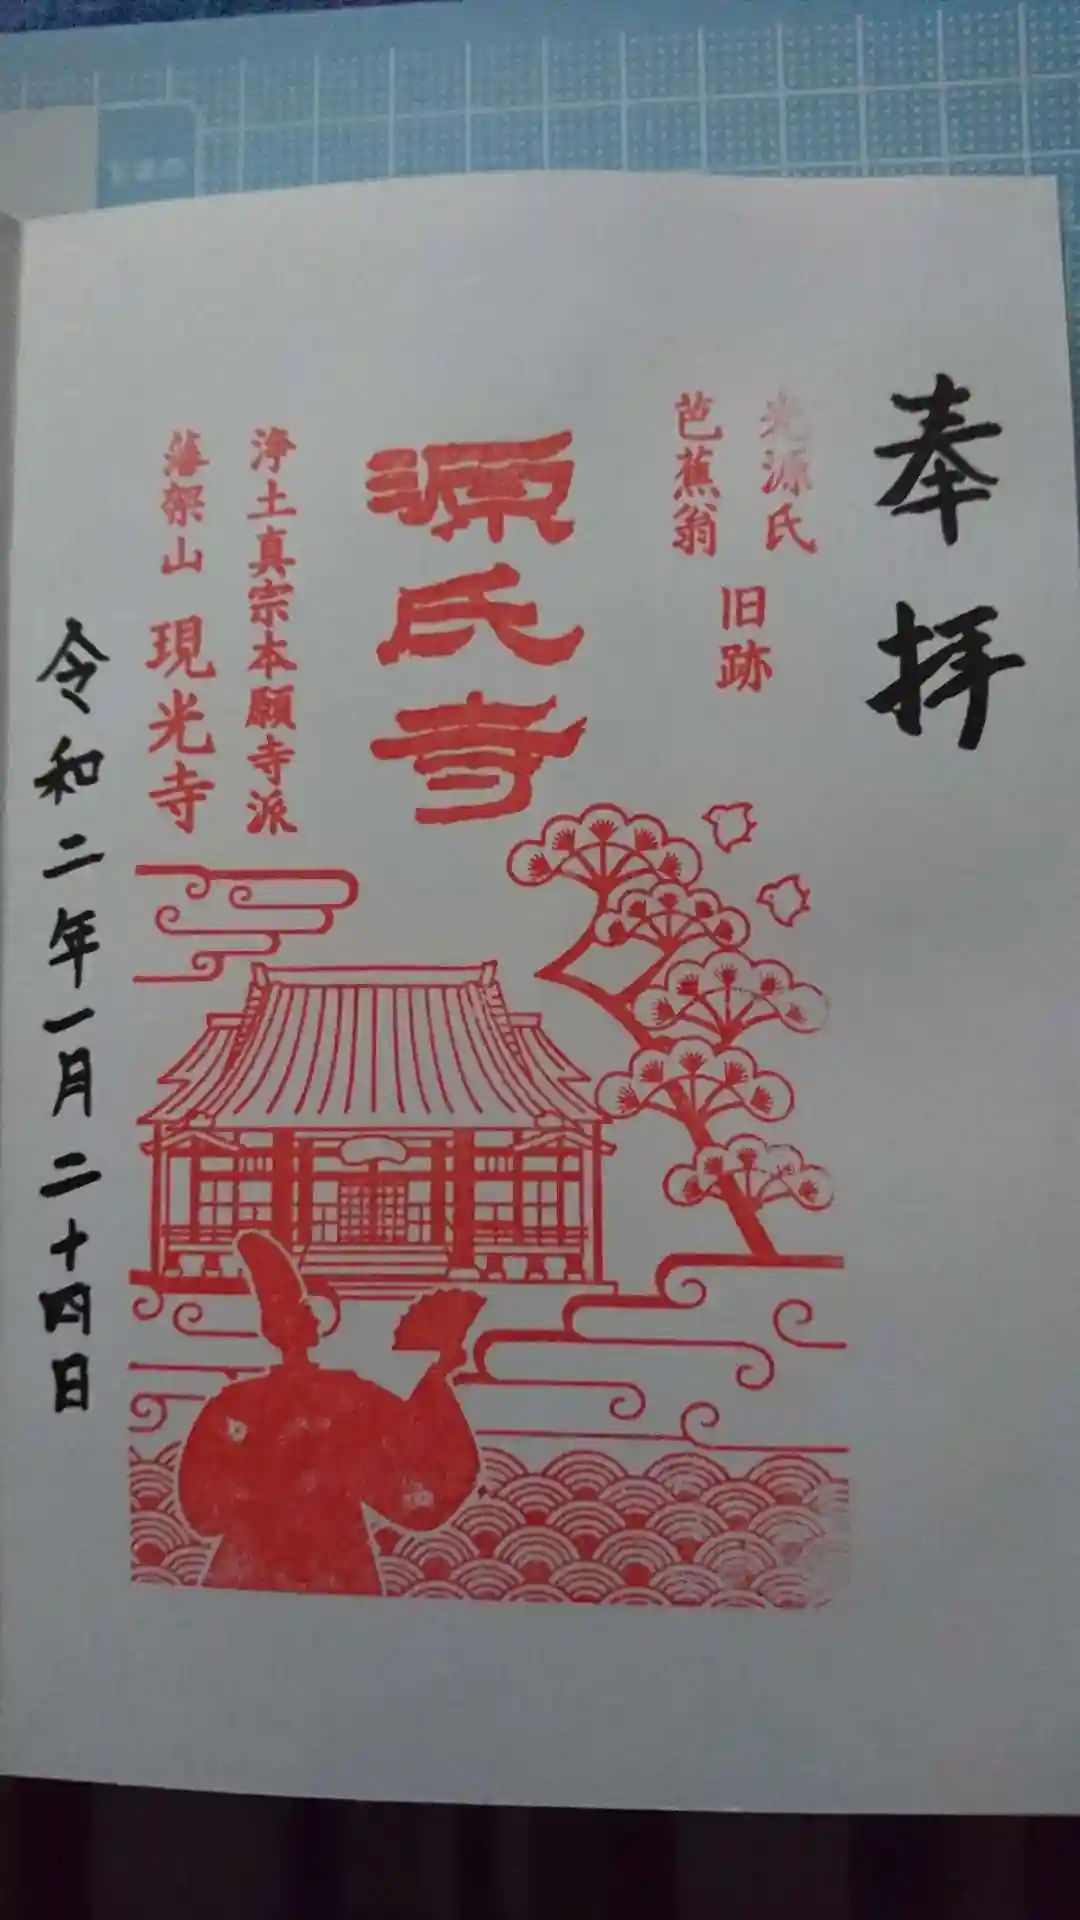 奉拝
光源氏
芭蕉翁
旧跡
源氏寺
浄土真宗本願寺派
藩架山 現光寺
令和二年一月二十四日